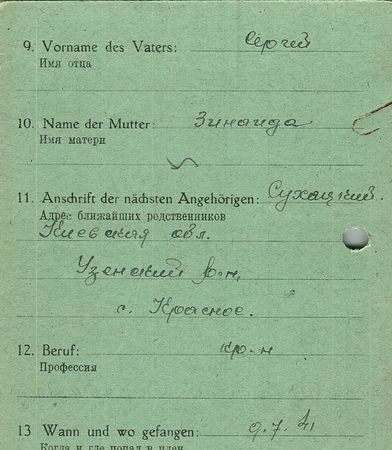 9. Vorname des Vaters: Сергей
Имя отца
10. Name der Mutter: Зинаида
Имя матери
11. Anschrift der nächsten Angehörigen: Сухацкий.
Адрес ближайших родственников
Киевская обл.
Узенский р-н,
с. Красное.
12. Beruf: кр-н
Профессия
13 Wann und wo gefangen: 9.7.41
Когда и где попал в плен